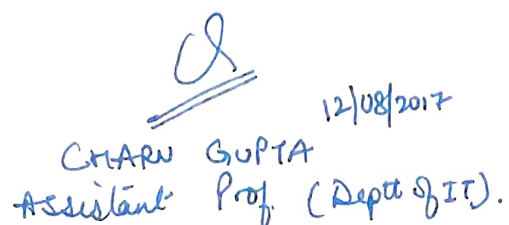 12/08/2017
CHARU GUPTA
Assistant Prof. (Deptt of IT).